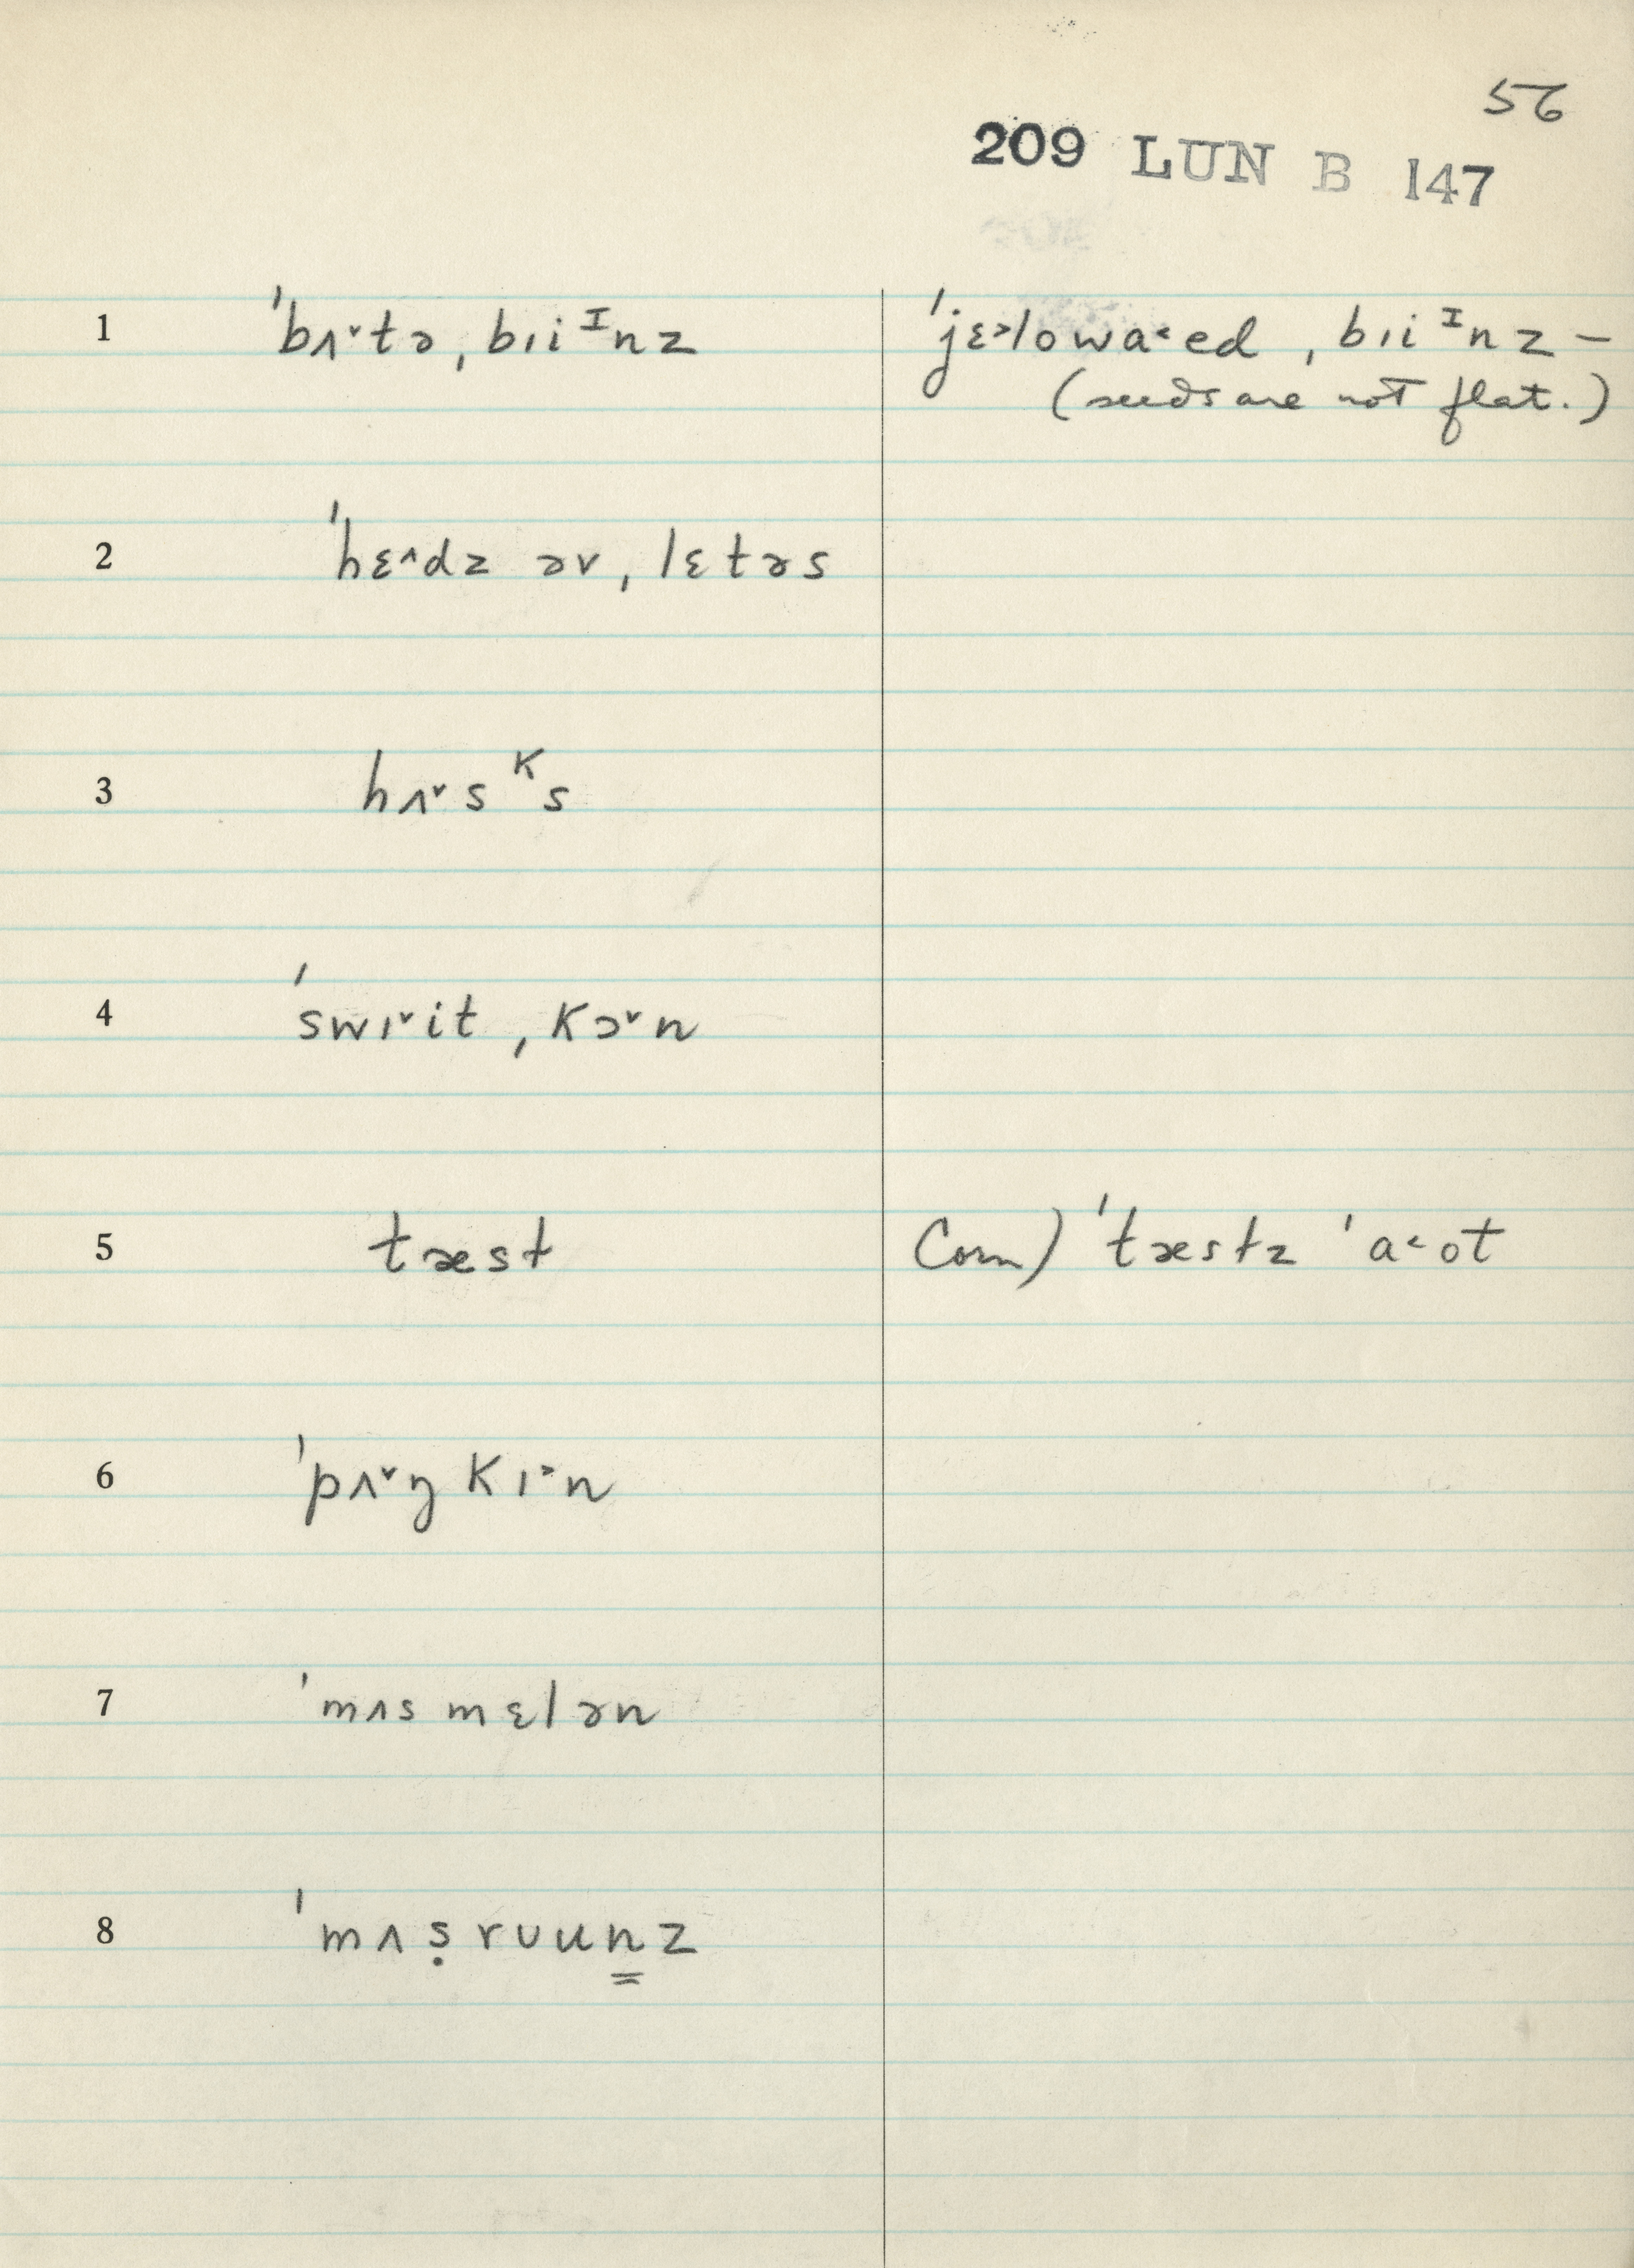 56
209 LUN B 147
1 ˈbʌ˅tə ˌbɪiᴵnz ˈjɛ˃lowa˂ed ˌbɪiᴵnz –
(seeds are not flat.)
2 ˈhɛ˄dz əv ˌlɛtəs
3 hʌ˅sᴷs
4 ˈswɪ˅it ˌkɔ˅n
5 tæst Com) ˈtæstz ˈa˂ot
6 ˈpʌ˅ŋkɪ˃n
7 ˈmʌsmɛlən
8 ˈmʌṣrʊun̳z